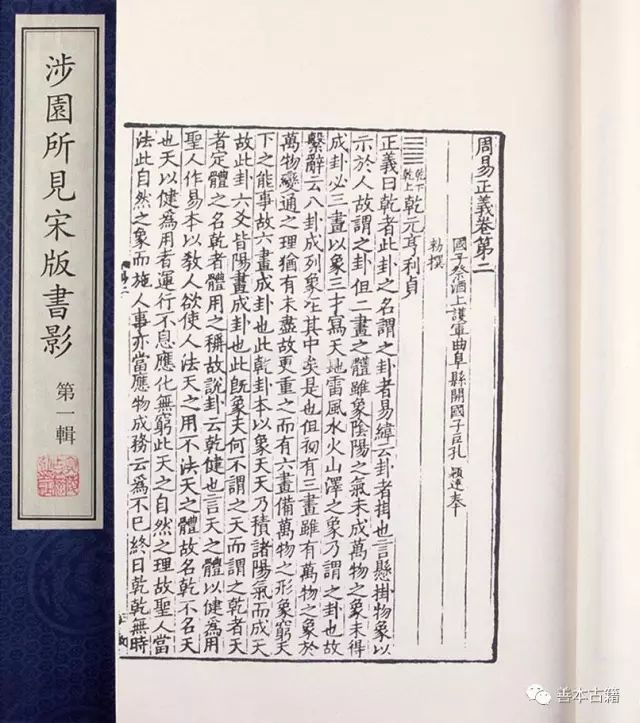 涉園所見宋版書影
第一輯
周易正義卷第二
國子祭酒上護軍曲阜縣開國子臣孔 穎達奉
勑撰
乾下乾上
乾元亨利貞
正義曰乾者此卦之名謂之卦者易緯云卦者掛也言懸掛物象以
示於人故謂之卦但二畫之體雖象陰陽之氣未成萬物之象未得
成卦必三畫以象三才寫天地雷風水火山澤之象乃謂之卦也故
繫辭云八卦成列象在其中矣是也但初有三畫雖有萬物之象於
萬物變通之理猶有未盡故更重之而有六畫備萬物之形象窮天
下之能事故六畫成卦也此乾卦本以象天天乃積諸陽氣而成天
故此卦六爻皆陽畫成卦也此既象天何不謂之天而謂之乾者天
者定體之名乾者體用之稱故說卦云乾健也言天之體以健為用
聖人作易本以教人欲使人法天之用不法天之體故名乾不名天
也天以健爲用者運行不息應化無窮此天之自然之理故聖人當
法此自然之象而施人事亦當應物成務云爲不已終日乾乾無時
善本古籍